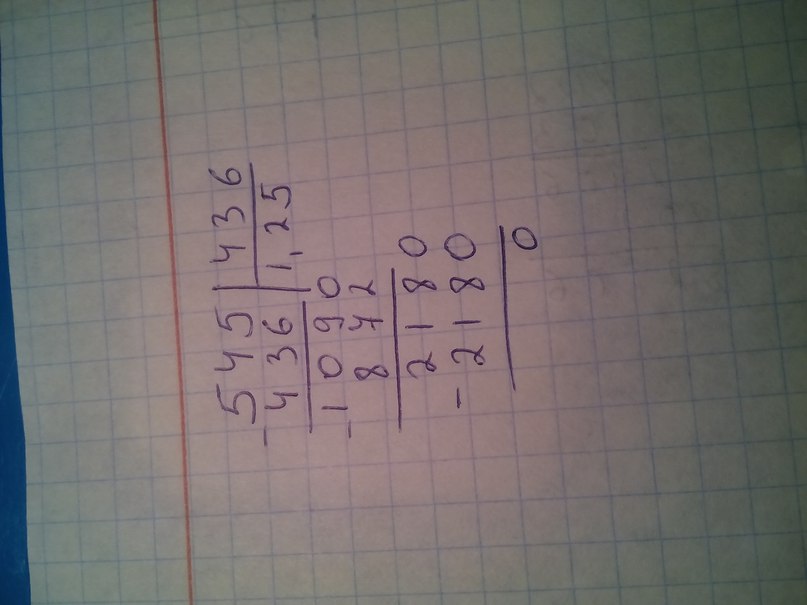 545 | 436
- 436 | 1,25
1090
- 872
2180
- 2180
0